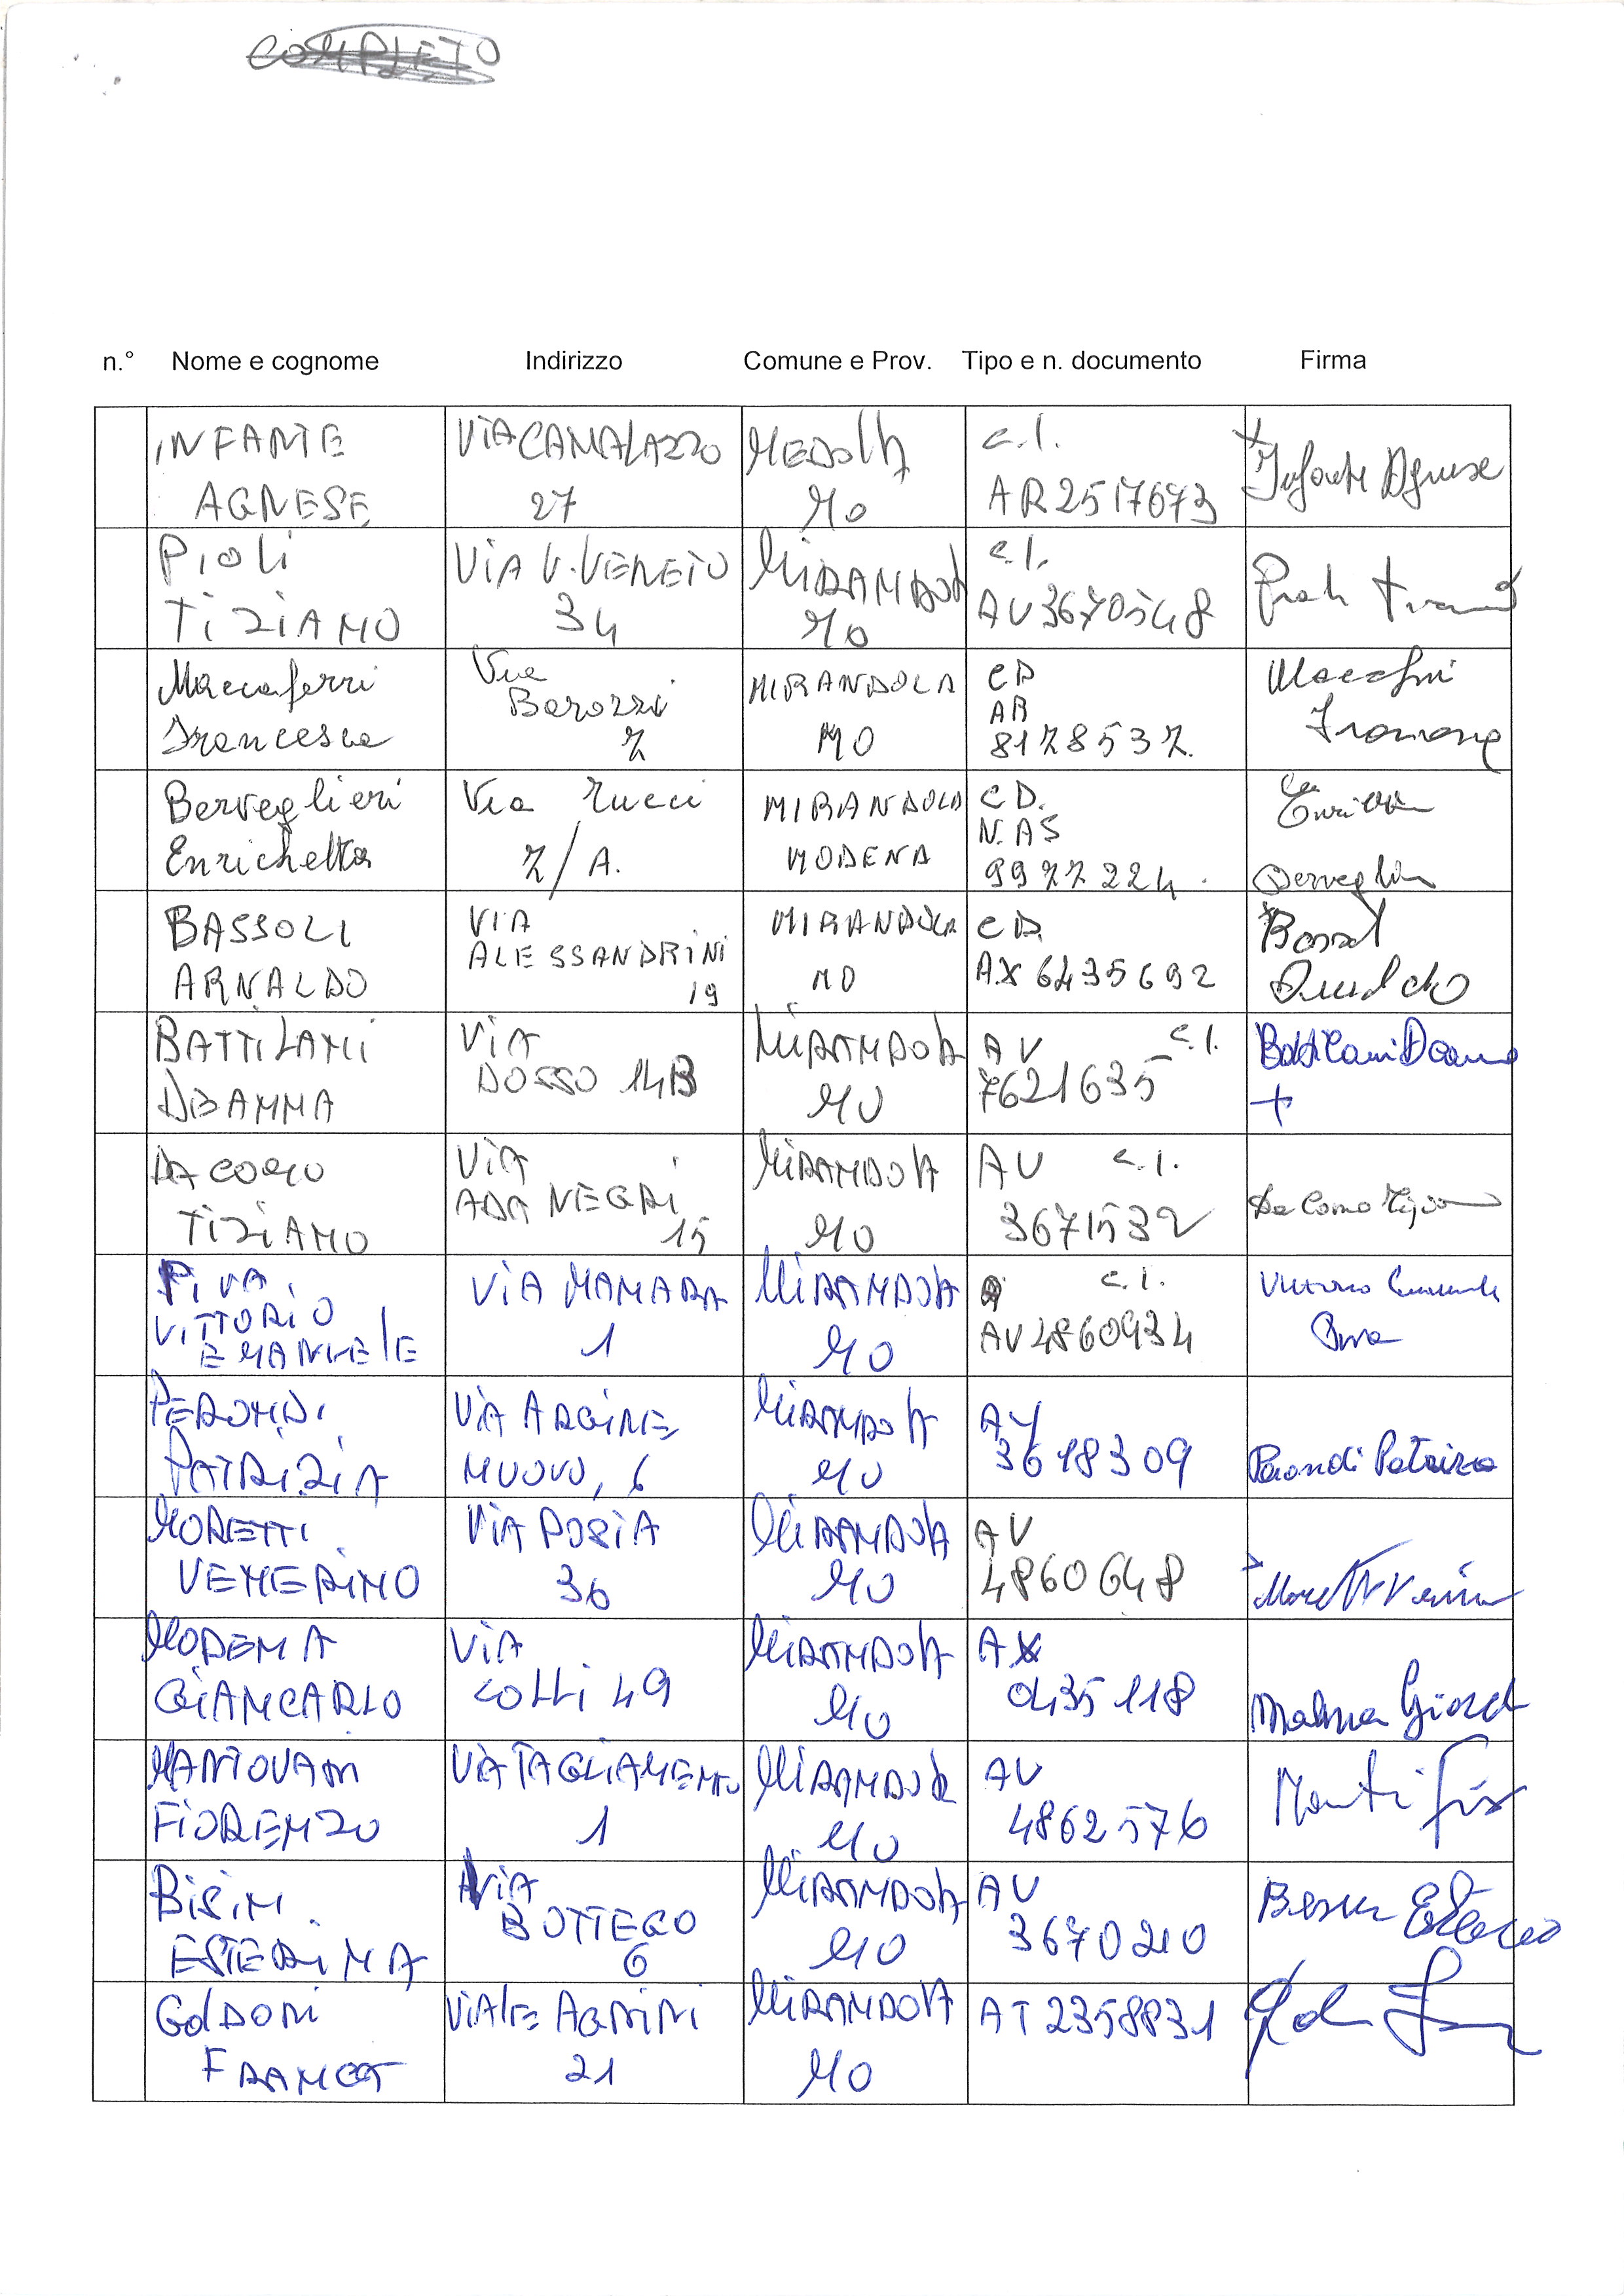 COMPLETO
n.° Nome e cognome Indirizzo Comune e Prov. Tipo e n. documento Firma
INFANTE VIA CAMALAZZO MEDOLLA C.I.
AGNESE 27 MO AR2517673 Infante Agnese
PIOLI VIA V. VENETO MIRANDOLA C.I.
TIZIANO 34 MO AV3670548
Maccaferri Via MIRANDOLA CD
Barozzi AR
Francesca 7 MO 8178537
Berveglieri Via Zucci MIRANDOLA CD.
N. AS
Enrichetta 7/A. MODENA 9977224
BASSOLI VIA MIRANDOLA CD.
ALESSANDRINI AX 6435692
ARNALDO 19 MO
BATTILANI VIA MIRANDOLA AV C.I. Battilani Deanna
DEANNA DOSSO 14B MO 7621635 +
DA COMO VIA MIRANDOLA AV C.I.
ADA NEGRI Da Como
TIZIANO 15 MO 3671532
PIVA VIA MAMARA MIRANDOLA C.I. Vittorio Emanuele
VITTORIO 1 MO AV4860934 Piva
EMANUELE
PERONDI VIA ARGINE MIRANDOLA AV
PATRIZIA NUOVO, 6 MO 3618309 Perondi Patrizia
MORETTI VIA POSTA MIRANDOLA AV
VENERINO 36 MO 4860648 Moretti
MODENA VIA MIRANDOLA AX
GIANCARLO COLLI 49 MO 0435118
MANTOVANI VIA TAGLIAMENTO MIRANDOLA AV
FIORENZO 1 MO 4862576
BISINI VIA MIRANDOLA AV
BOTTEGO
ESTERINA 6 MO 3670210
GOLDONI VIALE AGNINI MIRANDOLA AT 2358831
FRANCA 21 MO